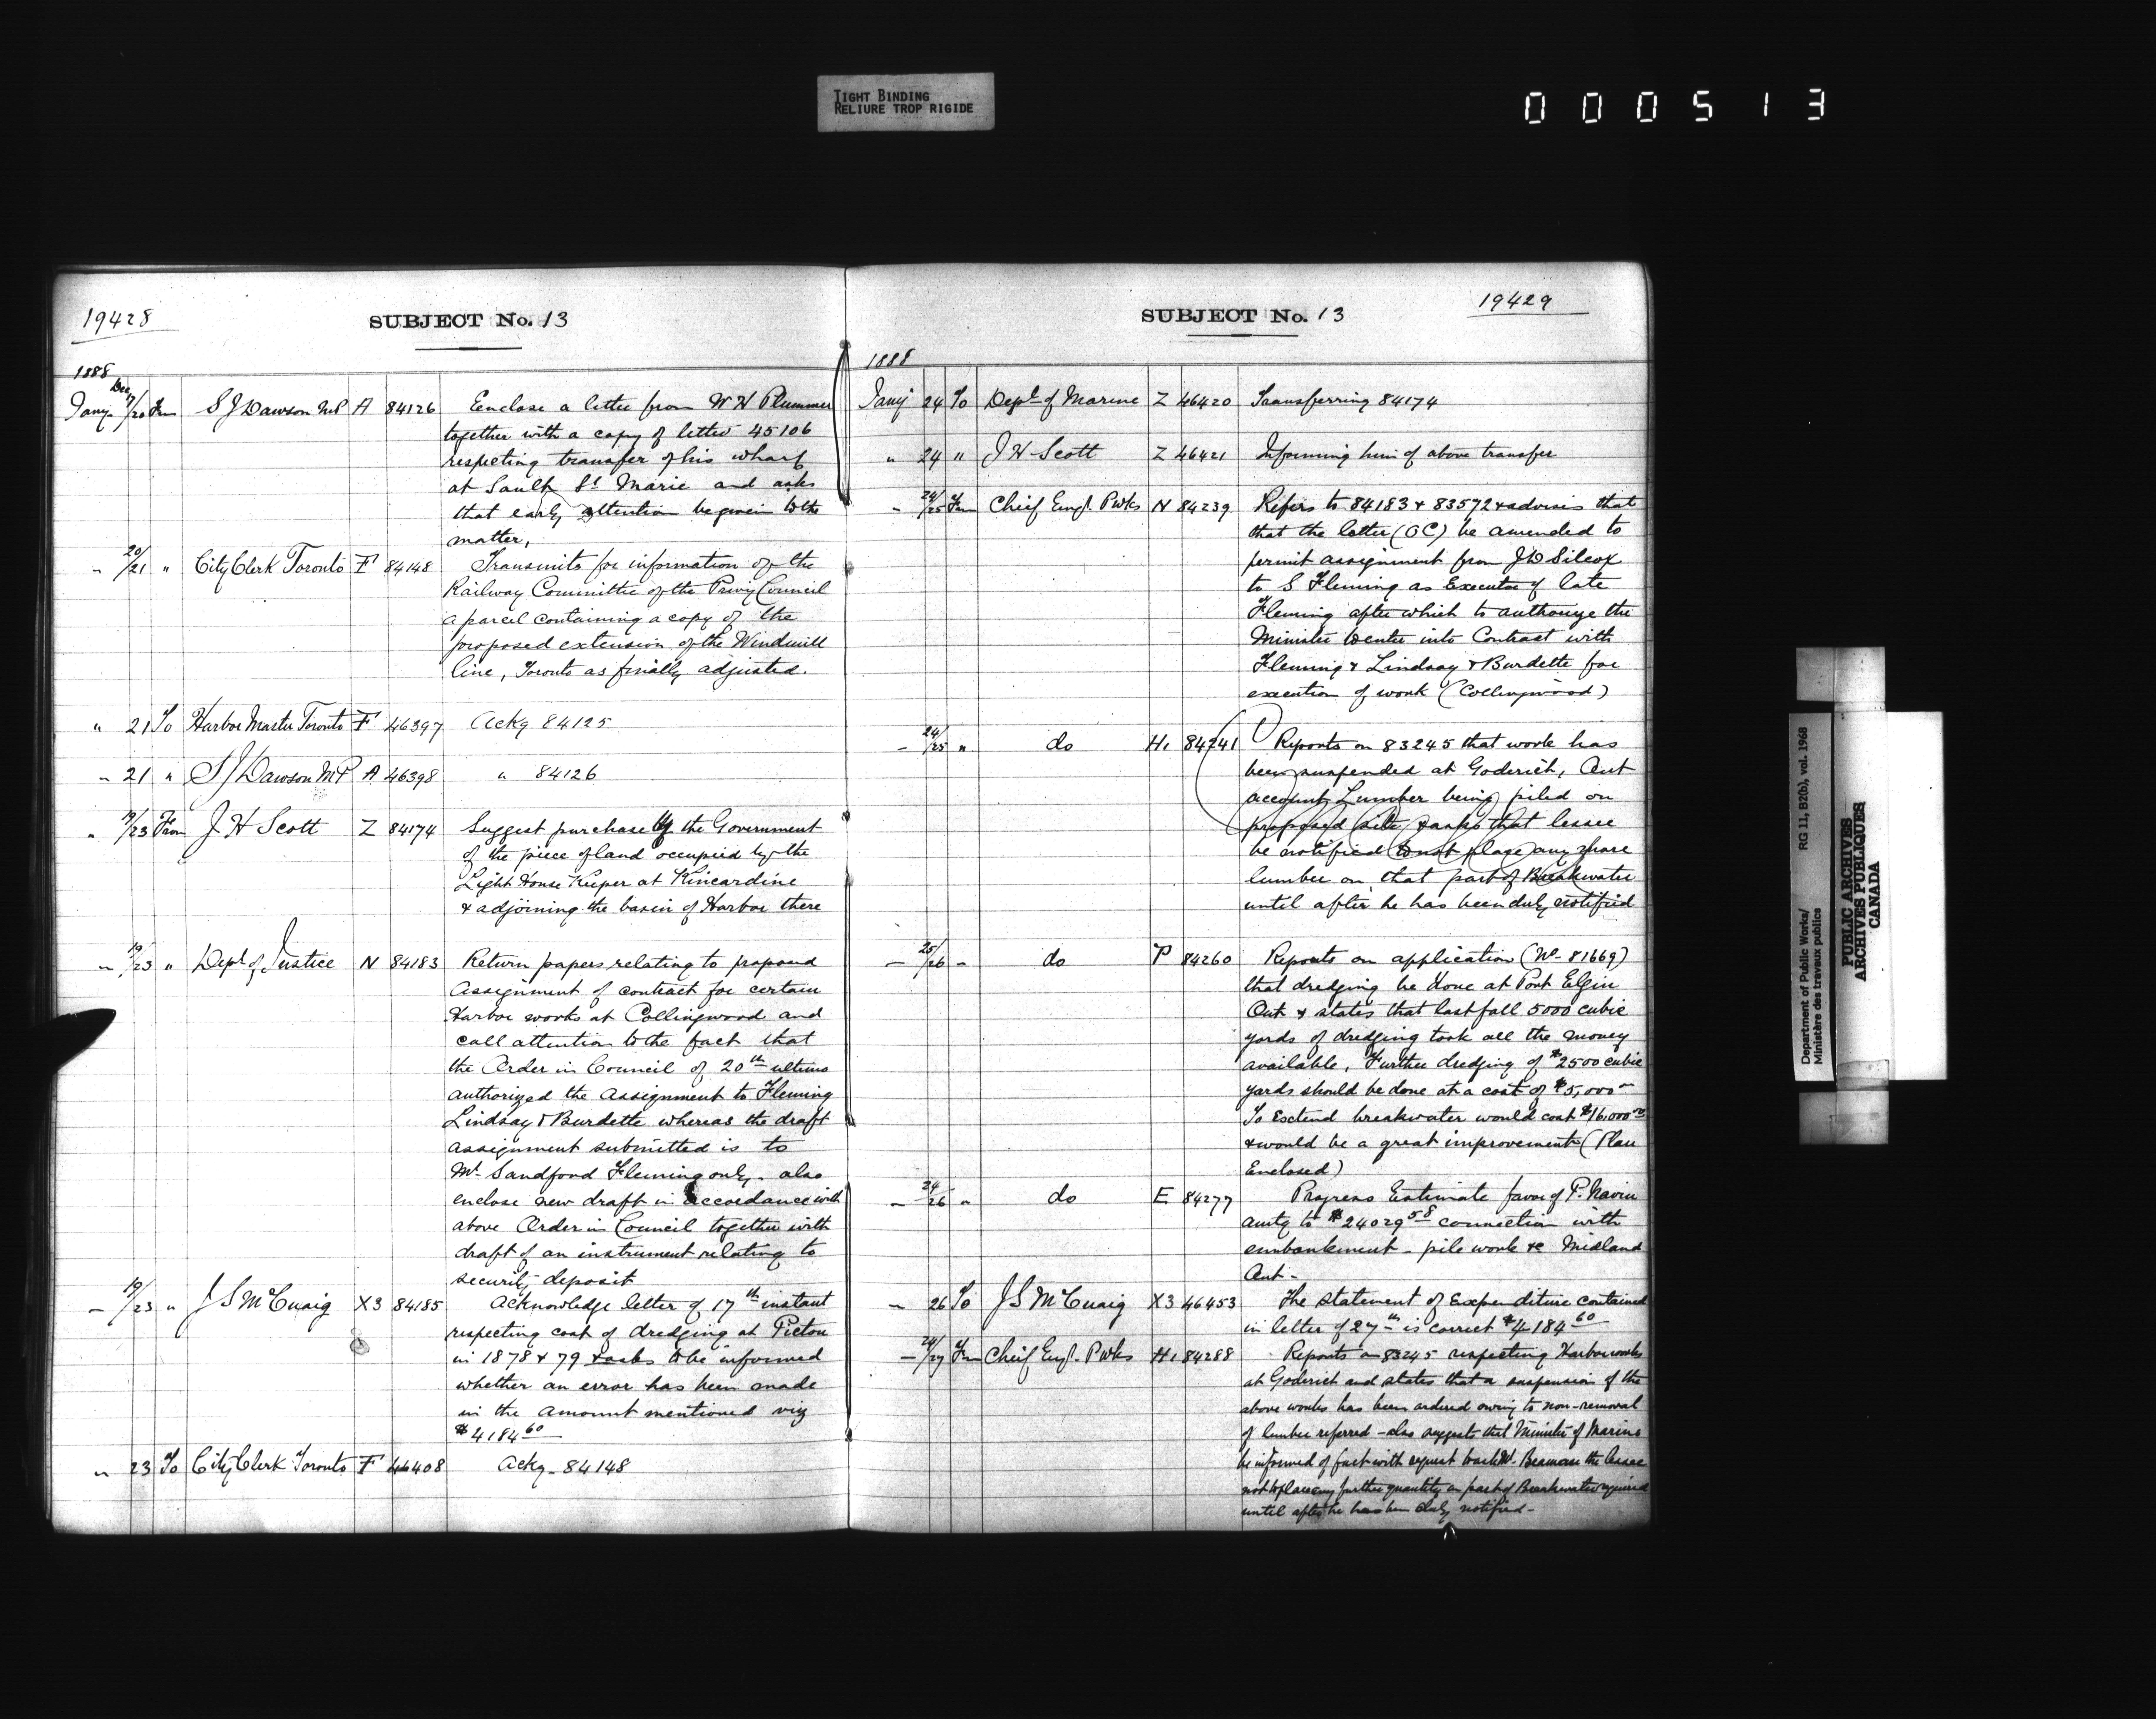 TIGHT BINDING
RELIURE TROP RIGIDE
000513
19428
SUBJECT No. 13
1888
Jany Dec 17/20 Frm S J Dawson MP A 84126 Eenclose a letter from W H Plummer
together with a copy of letter 45106
respecting transfer of his wharf
at Sault St Marie and asks
that early attention be given to the
matter,
" 20/21 " City Clerk Toronto F 84148 Transmits for information of the
Railway Committee of the Privy Council
a parcel containing a copy of the
proposed extension of the Windmill
line, Toronto as finally adjusted.
" 21 To Harbor Master Toronto F 46397 Ackg 84125
" 21 " S J Dawson MP A 46398 " 84126
" 19/23 From J H Scott Z 84174 Suggest purchase by the Government
of the piece of land occupied by the
Light House Keeper at Kincardine
& adjoining the basin of Harbor there
" 19/23 " Dept of Justice N 84183 Return papers relating to proposed
Assignment of contract for certain
Harbor works at Collingwood and
call attention to the fact that
the Order in Council of 20th ultimo
authorized the Assignment to Fleming
Lindsay & Burdette whereas the draft
assignment submitted is to
Mr Sandford Fleming only. also
enclose new draft in accordance with
above Order in Council together with
draft of an instrument relating to
security deposit
" 19/23 " J S McCuaig X3 84185 Acknowledge letter of 17th instant
respecting cost of dredging at Picton
in 1878 & 79 & asks to be informed
whether an error has been made
in the amount mentioned viz
$4184 60
" 23 To City Clerk Toronto F 46408 Ackg. 84148
SUBJECT No. 13
19429
1888
Jany 24 To Dept of Marine Z 46420 Transferring 84174
" 24 " J H Scott Z 46421 Informing him of above transfer
" 24/25 Frm Chief Engr. Pwks N 84239 Refers to 84183 & 83572 & advises that
that the letter (OC) be amended to
permit assignment from J D Silcox
to S Fleming as Executor of late
Fleming after which to authorize the
Minister to enter into Contract with
Fleming & Lindsay & Burdette for
execution of work (Collingwood)
– 24/25 " do H1 84241 Reports on 83245 that work has
been suspended at Goderich, Ont
account Lumber being piled on
proposed site & asks that lessee
be notified to not place any more
lumber on that part of Breakwater
until after he has been duly notified
– 25/26 " do P 84260 Reports on application (No 81669)
that dredging be done at Port Elgin
Ont & states that last fall 5000 cubic
yards of dredging took all the money
available, Further dredging of $2500 cubic
yards should be done at a cost of $5,000
To Extend breakwater would cost $16.000
& would be a great improvement (Plan
Enclosed)
– 24/26 " do E 84277 Progress Estimate favor of P. Navin
amtg to $24029 58 connection with
embankment – pile work &c Midland
Ont –
" 26 To J S McCuaig X3 46453 The statement of Expenditure contained
in letter of 27th is correct $4184 60
– 24/27 Frm Cheif Engr. Pwks H1 84288 Reports on 83245 respecting Harbor works
at Goderich and states that a suspension of the
above works has been ordered owing to non-removal
of lumber referred – also suggests that Minister of Marine
be informed of fact with request to ask Mr. Beaman the lessee
not to place any further quantity on part of Breakwater required
until after he has been duly notified –
Department of Public Works/ RG 11, B2(b), vol. 1968
Ministère des travaux publics
PUBLIC ARCHIVES
ARCHIVES PUBLIQUES
CANADA